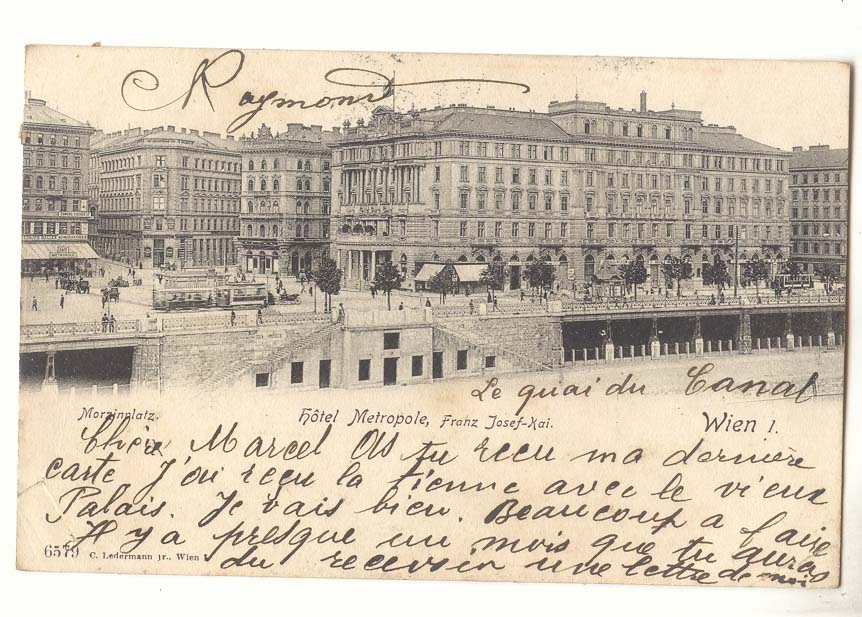 Raymond
Le quai du Canal
Morzinplatz.
Hôtel Metropole, Franz Josef-Kai.
Wien I.
Chère Marcel As tu reçu ma dernière
carte. J'ai reçu la tienne avec le vieux
Palais. Je vais bien. Beaucoup a faire
Il y a presque un mois que tu auras
du recevoir une lettre de moi
6579 C. Ledermann jr., Wien